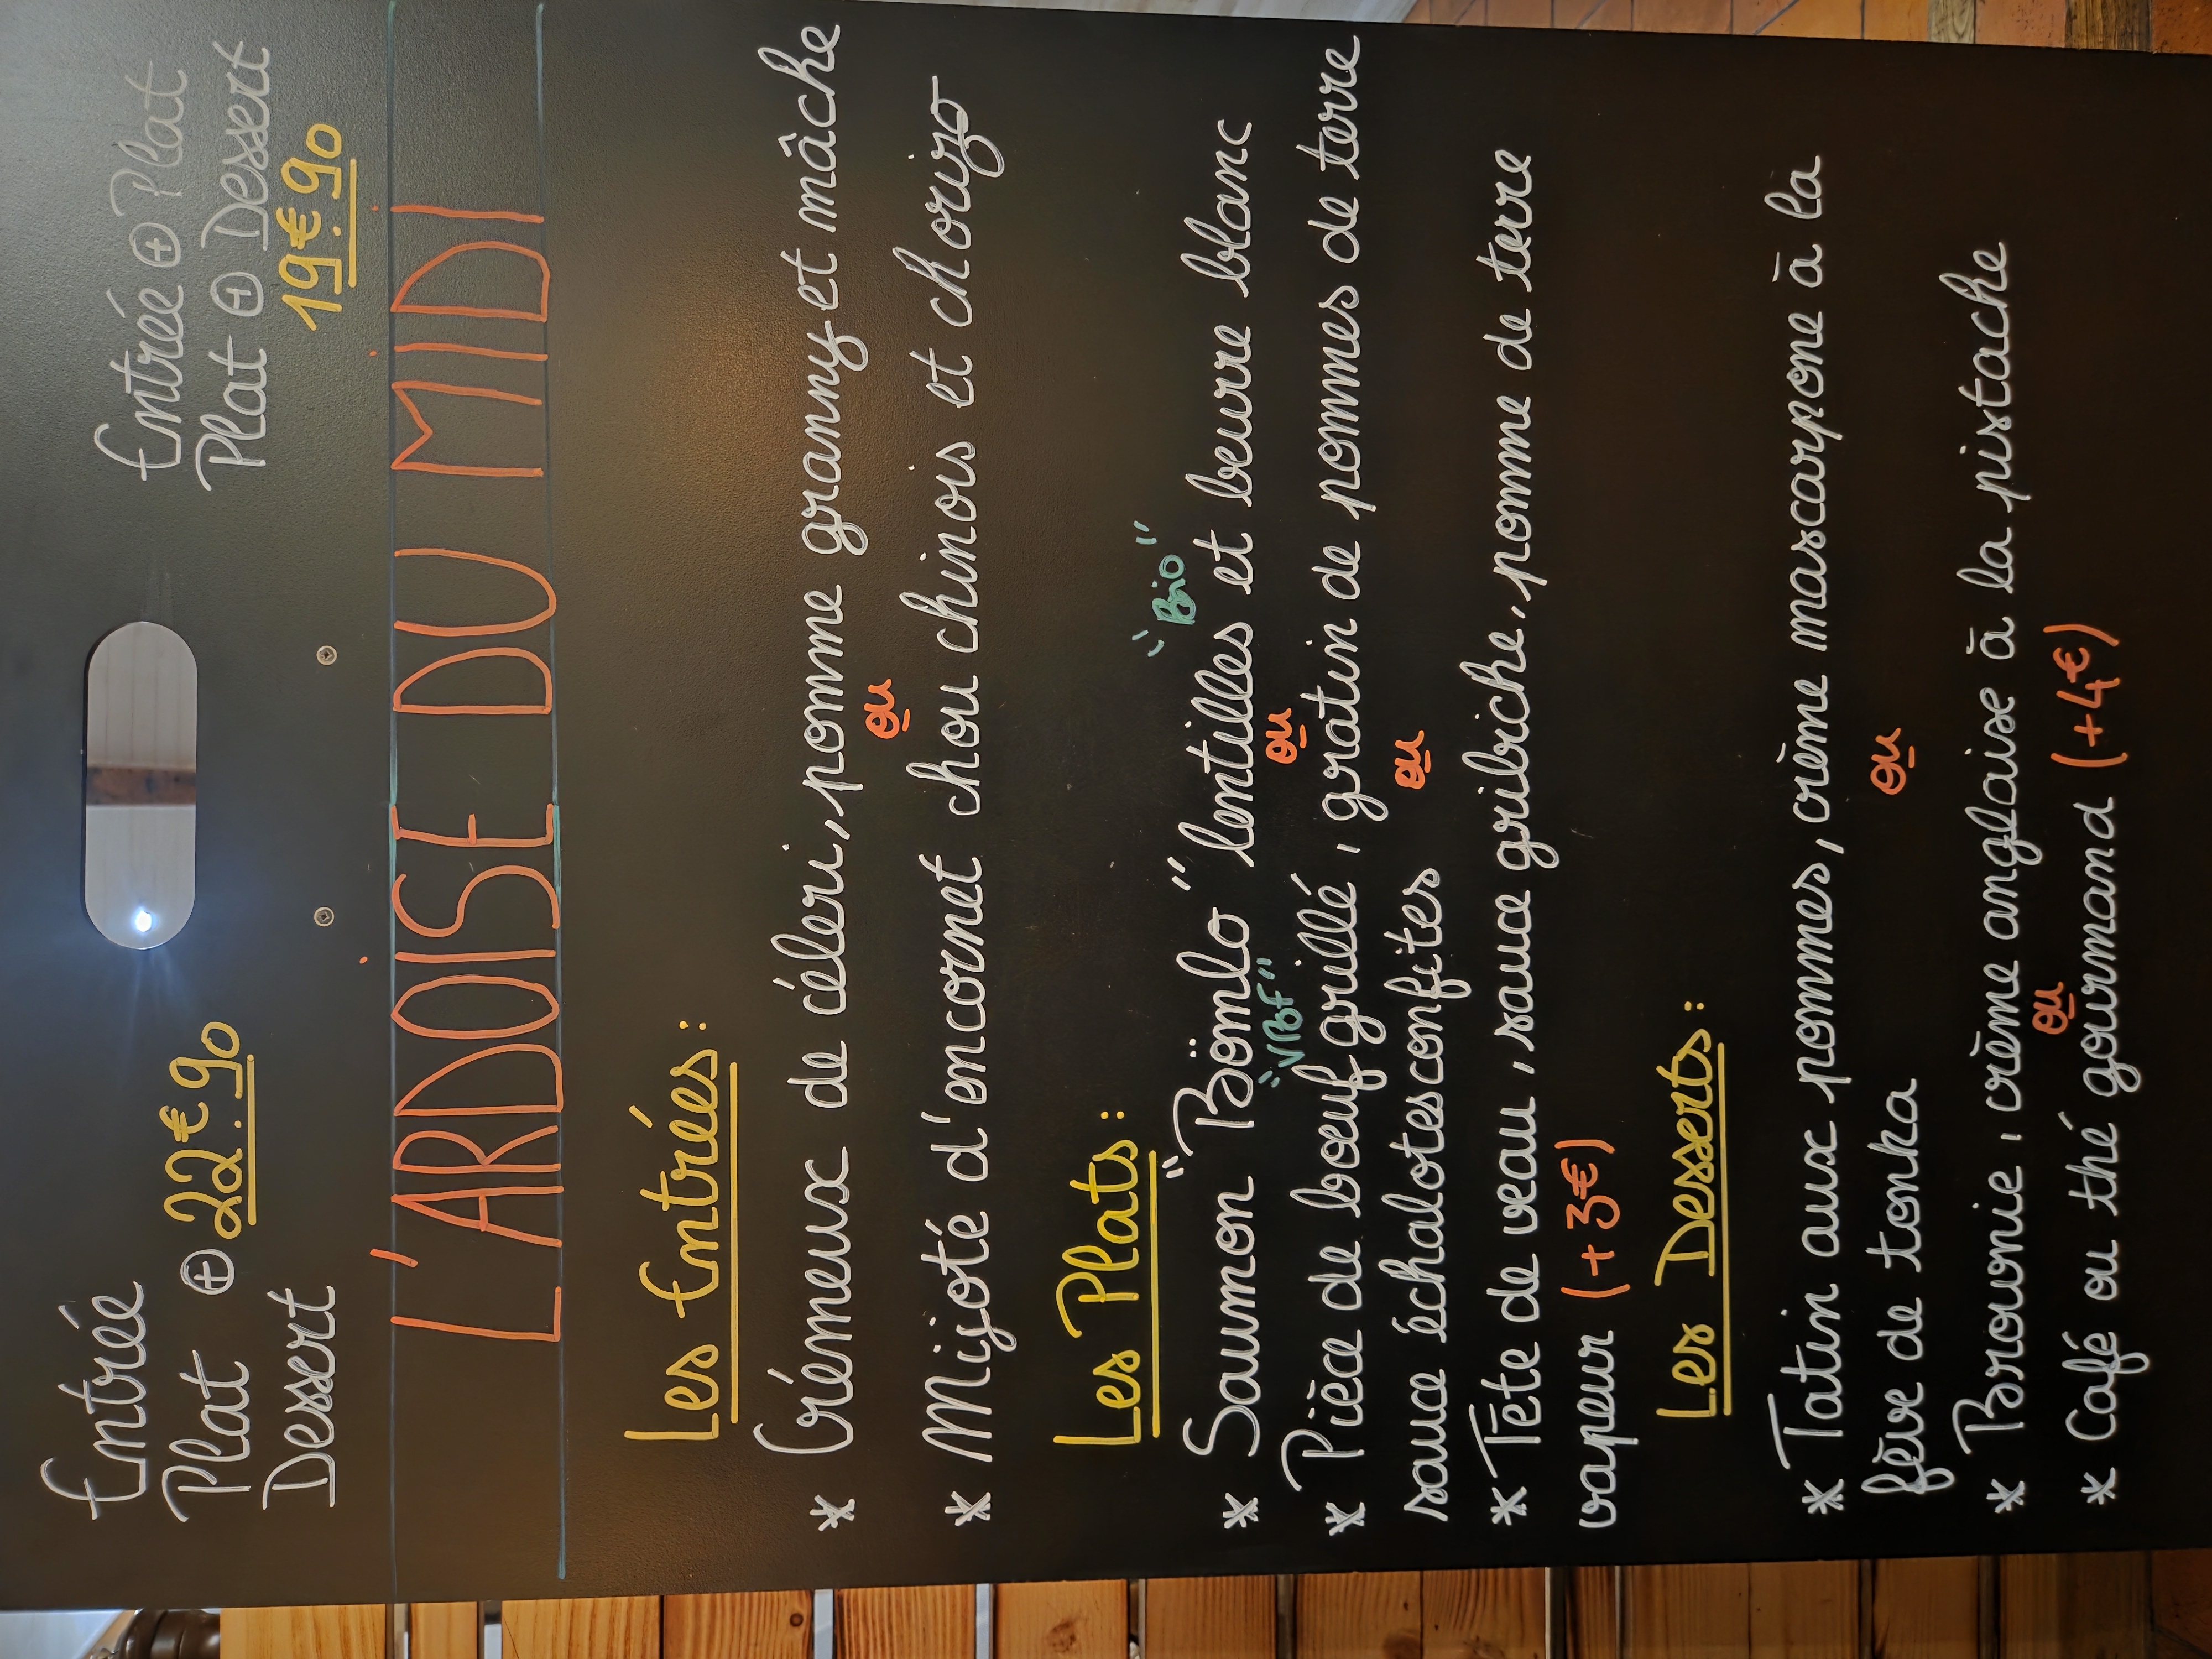 Entrée
Plat ⊕ 22€90
Dessert
Entrée ⊕ Plat
Plat ⊕ Dessert
19€90
L'ARDOISE DU MIDI
Les Entrées:
* Crémeux de céleri, pomme granny et mâche
ou
* Mijoté d'encornet chou chinois et chorizo
Les Plats:
"Bio"
* Saumon "Bömlo" lentilles et beurre blanc
"VBF" ou
* Pièce de boeuf grillé, gratin de pommes de terre
sauce échalotes confites ou
* Tête de veau, sauce gribiche, pomme de terre
vapeur (+3€)
Les Desserts:
* Tatin aux pommes, crème mascarpone à la
fève de tonka ou
* Brownie, crème anglaise à la pistache
ou
* Café ou thé gourmand (+4€)